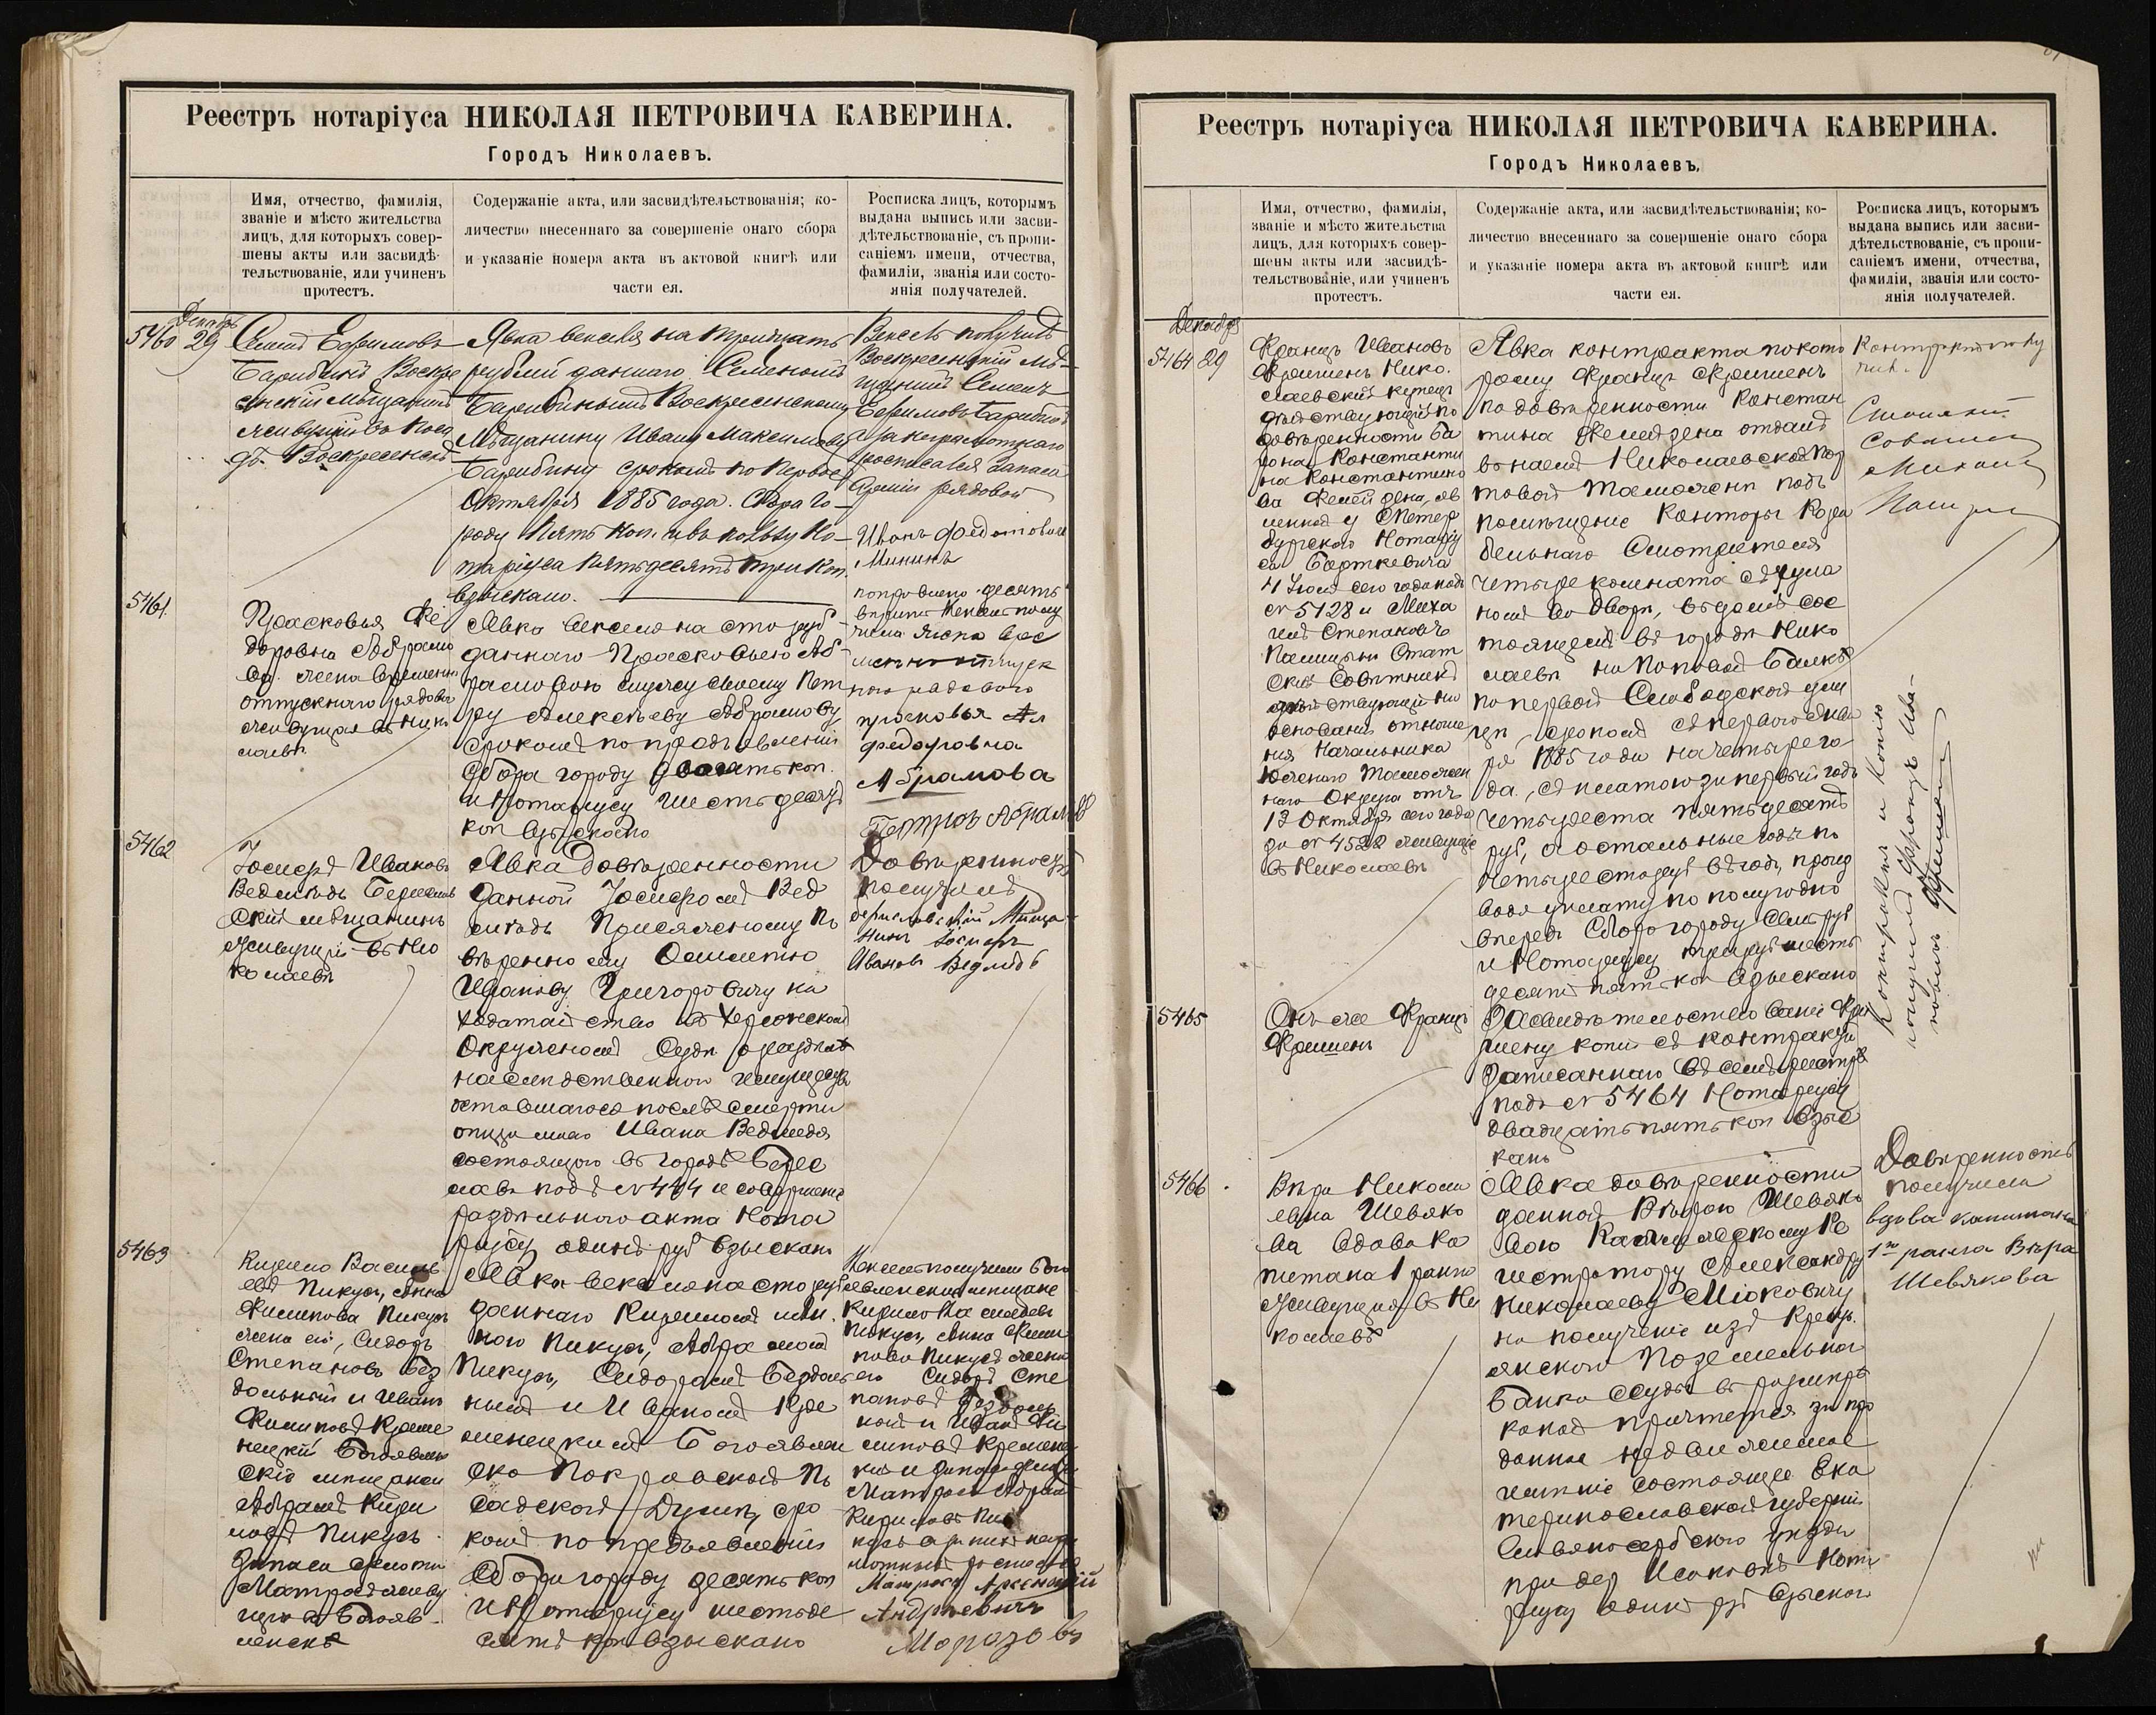 Реестръ нотаріуса НИКОЛАЯ ПЕТРОВИЧА КАВЕРИНА.
Городъ Николаевъ.
Имя, отчество, фамилія,
званіе и мѣсто жительства
лицъ, для которыхъ совер-
шены акты или засвидѣ-
тельствованіе, или учиненъ
протестъ.
Содержаніе акта, или засвидѣтельствованія; ко-
личество внесеннаго за совершеніе онаго сбора
и указаніе номера акта въ актовой книгѣ или
части ея.
Росписка лицъ, которымъ
выдана выпись или засви-
дѣтельствованіе, съ пропи-
саніемъ имени, отчества,
фамиліи, званія или состо-
янія получателей.
Декабрь
5460 29
Ефимовъ
Барибинъ Воскре
сенскій мѣщанинъ
живущій въ поса
дѣ Воскресенскъ
Явка векселя на тридцать
рублей даннаго Семеномъ
Барибинымъ Воскресенскому
Мѣщанину Ивану Максимову
Барибину срокомъ по первое
Октября 1885 года. Сбора го-
роду пять коп. и въ пользу Но-
таріуса пятьдесятъ три коп.
взыскано.
Вексель получилъ
Воскресенскій мѣ-
щанинъ Семенъ
Ефимовъ Барибинъ
а за неграмотнаго
росписался Запаса
Арміи рядовой
Иванъ Федотовъ
Мининъ
5461
Прасковья Фе
доровна Абрамо
ва жена временно
отпускнаго рядова
живущая въ Нико
лаевѣ
Явка векселя на сто руб
даннаго Прасковьею Аб-
рамовою мужу своему Пет
ру Алексѣеву Абрамову
срокомъ по предъявленіи
Сбора городу десять коп.
и Нотаріусу шестьдесятъ
коп взыскано
вексель полу
чила жена вре
рядоваго
прасковья
федоровна
Абрамова
Петръ Абрамовъ
5462
Іосифъ Ивановъ
Ведмѣдь Берислав
скій мѣщанинъ
живущій въ Ни
колаевѣ
Явка довѣренности
данной Іосифомъ Вед
мѣдь Присяжному По
вѣренному
Иванову Григоровичу на
ходатайство въ Херсонскомъ
Окружномъ Судѣ о раздѣлѣ
наслѣдственнаго имущества
оставшагося послѣ смерти
отца моего Ивана Ведмедя
состоящаго въ городѣ Берис
лавѣ подъ № 444 и совершеніе
раздѣльнаго акта Нота
ріусу одинъ руб взыскано
Довѣренность
получилъ
бериславскій Мѣща
нинъ Іосифъ
Ивановъ Ведмѣдь
5463
Кирило Василь
евъ Пикусъ, Анна
Филипова Пикусъ
жена его, Сидоръ
Степановъ Без
дольный и Иванъ
Филиповъ Креме
нецкій Богоявлен
скіе мѣщане и
Абрамъ Кири
ловъ Пикусъ
Запаса флота
Матросъ живу
щіе въ Богояв-
ленскѣ
Явка векселя на сто руб
даннаго Кириломъ и Ан
ною Пикусъ, Абрамомъ
Пикусъ, Сидоромъ Бездоль
нымъ и Иваномъ Кре
менецкимъ Богоявлен
ско Покровской По
садской Думѣ, сро
комъ по предъявленіи
Сбора городу десять коп
и Нотаріусу шестьде
сятъ коп взыскано
Вексель получили Бого
явленскіе мѣщане
Кирило Васильевъ
Пикусъ, Анна Фили
пова Пикусъ жена
его Сидоръ Сте
пановъ Бездоль
ный и Иванъ Фи
липовъ Кременец
кій и запаса флота
Матросъ Абрамъ
Кириловъ Пи
кусъ а за нихъ негра
мотныхъ росписался
Матросъ Арсеній
Андреевичъ
Морозовъ
Реестръ нотаріуса НИКОЛАЯ ПЕТРОВИЧА КАВЕРИНА.
Городъ Николаевъ.
Имя, отчество, фамилія,
званіе и мѣсто жительства
лицъ, для которыхъ совер-
шены акты или засвидѣ-
тельствованіе, или учиненъ
протестъ.
Содержаніе акта, или засвидѣтельствованія; ко-
личество внесеннаго за совершеніе онаго сбора
и указаніе номера акта въ актовой книгѣ или
части ея.
Росписка лицъ, которымъ
выдана выпись или засви-
дѣтельствованіе, съ пропи-
саніемъ имени, отчества,
фамиліи, званія или состо-
янія получателей.
Декабря
5464 29
Францъ Ивановъ
Фришенъ Нико
лаевскій купецъ
дѣйствующій по
довѣренности Ба
рона Константи
на Константино
ва
у С Петер
бургскаго Нотарі
са Барткевича
4 Іюля сего года подъ
№ 5128 и Миха
илъ Степановъ
Статскій Совѣтникъ
основаніи отноше
нія Начальника
Южнаго Таможен
наго Округа отъ
13 Октября сего года
за № 4522 живущіе
въ Николаевѣ
Явка контракта по кото
рому Францъ Фришенъ
по довѣренности Констан
тина отдалъ
въ наемъ Николаевской Пор
товой Таможни подъ
помѣщеніе Конторы Кора
бельнаго Смотрителя
четыре комнаты съ чула
номъ во дворѣ, въ домѣ сос
тоящемъ въ городѣ Нико
лаевѣ на Поповой Балкѣ
по первой Слободской ули
цѣ, срокомъ съ перваго Янва
ря 1885 года на четыре го-
да, съ платою за первый годъ
четыреста пятьдесятъ
руб, а остальные годы по
четыреста руб въ годъ, произ
водя уплату по полугодно
впередъ Сбора городу семь руб
и Нотаріусу три руб шесть
десятъ пять коп взыскано
Контрактъ полу
чилъ.
Статскій
Совѣтникъ
Михаилъ
Контрактъ и Копію
получилъ Францъ Ива-
новичъ Фришенъ
5465
Онъ же Францъ
Фришенъ
Засвидѣтельствованіе Фри
шену копіи съ контракта
записаннаго въ семъ реестрѣ
подъ № 5464 Нотаріусу
двадцать пять коп взыс
кано
5466
Вѣра Никола
евна Шевяко
ва вдова Ка
питана 1 ранга
живущая въ Ни
колаевѣ
Явка довѣренности
данной Вѣрою Шевяко
вою Коллежскому Ре
гистратору Александру
Николаеву Міоковичу
на полученіе изъ Кресть
янскаго Поземельнаго
Банка ссуды въ размѣрѣ
какой причтется за про
данное недвижимое
имѣніе состоящее Ека
теринославской губерніи
Славяносербскаго уѣзда
при дер Нота
ріусу одинъ руб взыскано
Довѣренность
получила
вдова капитана
1го ранга Вѣра
Шевякова